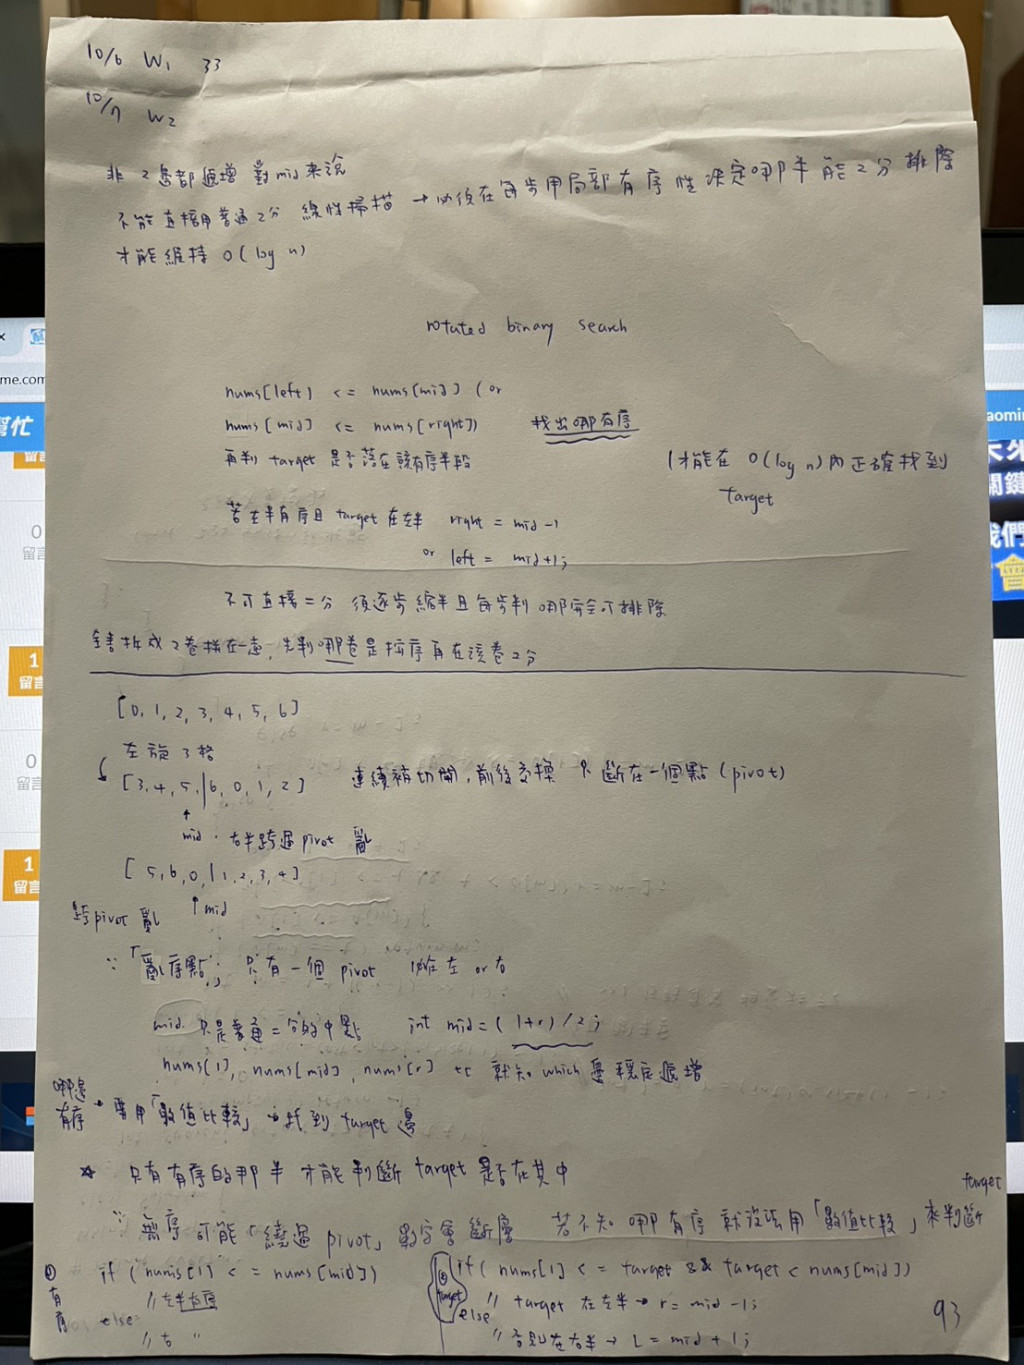 10/6 W1 33
10/7 W2
非 2 邊都遞增 對mid來說
不能直接用普通2分 線性掃描 → 必須在每步用局部有序性決定哪半能2分排除
才能維持 O(log n)
rotated binary search
nums[left] <= nums[mid] (or
nums[mid] <= nums[right]) 找出哪有序
再判 target 是否落在該有序半段
(才能在 O(log n)內正確找到
target
若左半有序且 target 在左半 right = mid-1
or left = mid+1;
不可直接二分 須逐步縮半且每步判 哪 可排除
拆成2卷拼在一起, 先判哪卷是按序再在該卷2分
[0, 1, 2, 3, 4, 5, 6]
左旋 3 格
[3, 4, 5, | 6, 0, 1, 2] 連續被切開, 前後交換 只斷在一個點 (pivot)
↑
mid . 右半跨過 pivot 亂
[ 5, 6, 0, | 1, 2, 3, 4]
↑ mid
跨pivot 亂
∵「亂序點」; 只有一個 pivot 必在左 or 右
mid 只是普通二分的中點 int mid = ( l+r) / 2;
nums[l], nums[mid], nums[r] 就知 which 邊穩定遞增
哪邊
有序 → 要用「數值比較」→ 找到 target 邊
☆ 只有有序的那半 才能判斷 target 是否在其中
∵ 無序可能「繞過 pivot」數字會斷層 若不知哪有序就沒法用「數值比較」來判斷
target
① 有序 if (nums[l] <= nums[mid])
// 左半有序
else
// 右 "
② target if ( nums[l] <= target && target < nums[mid])
// target 在左半 → r = mid -1;
else
// 否則在右半 → L = mid + 1;
93
0
留言
1
留言
0
留言
1
留言
me.com
幫忙
關鍵
我們
會